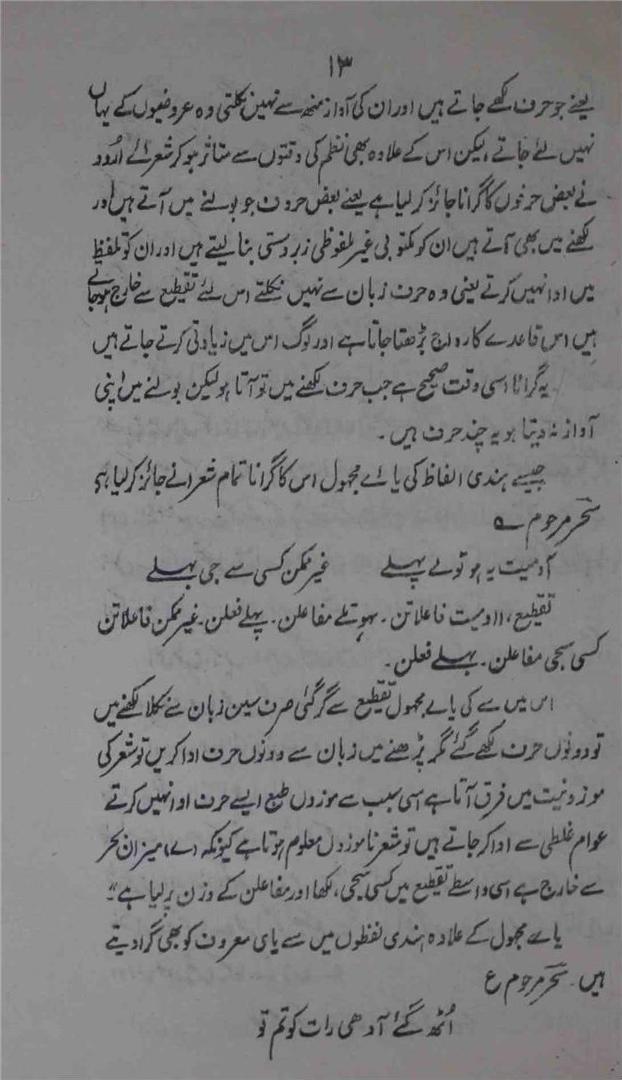 ۱۳
یعنے جو حرف لکھے جاتے ہیں اور ان کی آواز منھ سے نہیں نکلتی وہ عروضیوں کے یہاں
نہیں لئے جاتے ، لیکن اس کے علاوہ بھی نظم کی دقتوں سے متاثر ہو کر شعرائے اُردو
نے بعض حرفوں کا گرانا جائز کر لیا ہے یعنے بعض حروف جو بولنے میں آتے ہیں اور
لکھنے میں بھی آتے ہیں ان کو مکتوبی غیر ملفوظی زبردستی بنا لیتے ہیں اور ان کو تلفظ
میں ادا نہیں کرتے یعنی وہ حرف زبان سے نہیں نکلتے اس لئے تقطیع سے خارج ہو جاتے
ہیں اس قاعدے کا رواج بڑھتا جاتا ہے اور لوگ اس میں زیادتی کرتے جاتے ہیں
یہ گرانا اسی وقت صحیح ہے جب حرف لکھنے میں تو آتا ہو لیکن بولنے میں اپنی
آواز نہ دیتا ہو یہ چند حرف ہیں ۔
جیسے ہندی الفاظ کی یائے مجہول اس کا گرانا تمام شعرا نے جائز کر لیا ہے
سحر مرحوم ؎
آدمیت یہ ہو تو لے پہلے غیر ممکن کسی سے جی بہلے
تقطیع ، اادمیت فاعلاتن ۔ یہو تلے مفاعلن ۔ پہلے فعلن ۔ غیر ممکن فاعلاتن
کسی سجی مفاعلن ۔ بہلے فعلن ۔
اس میں سے کی یائے مجہول تقطیع سے گر گئی صرف سین زبان سے نکلا لکھنے میں
تو دونوں حرف لکھے گئے مگر پڑھنے میں زبان سے دونوں حرف ادا کریں تو شعر کی
موزونیت میں فرق آتا ہے اسی سبب سے موزوں طبع ایسے حرف ادا نہیں کرتے
عوام غلطی سے ادا کر جاتے ہیں تو شعر ناموزوں معلوم ہوتا ہے کیونکہ (ے) میزان بحر
سے خارج ہے اسی واسطے تقطیع میں کسی سجی ، لکھا اور مفاعلن کے وزن پر لیا ہے"۔
یائے مجہول کے علاوہ ہندی لفظوں میں سے یای معروف کو بھی گرا دیتے
ہیں ۔ سحر مرحوم ع
اُٹھ گئے آدھی رات کو تم تو